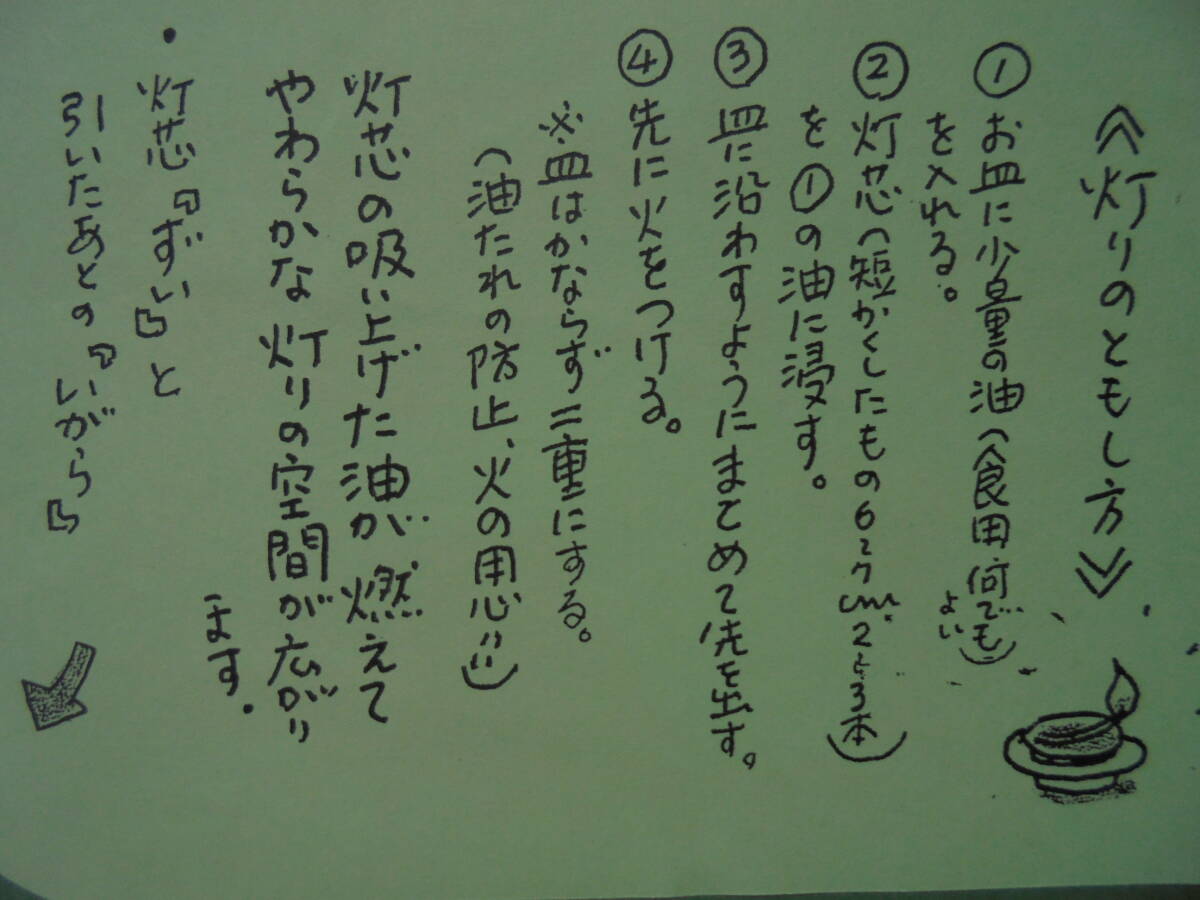 《灯りのともし方》
① お皿に少量の油(食用、何でもよい)
を入れる。
② 灯芯(短かくしたもの6〜7cm・2〜3本)
を①の油に浸す。
③ 皿に沿わすようにまとめて先を出す。
④ 先に火をつける。
※皿はかならず二重にする。
(油たれの防止、火の用心!!)
灯芯の吸い上げた油が燃えて
やわらかな灯りの空間が広がり
ます。
・灯芯『ずい』と
引いたあとの『いがら』